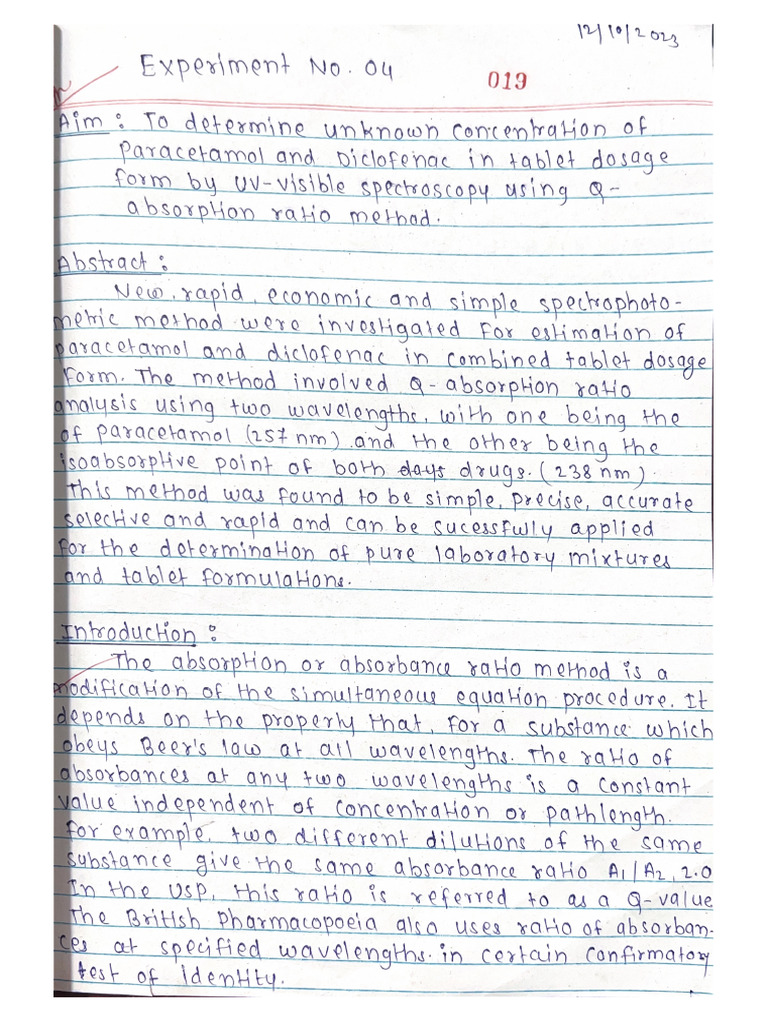 12/10/2023
Experiment No. 04
019
Aim : To determine unknown concentration of
paracetamol and Diclofenac in tablet dosage
form by UV-visible spectroscopy using Q-
absorption ratio method.
Abstract :
New, rapid, economic and simple spectrophoto-
metric method were investigated for estimation of
paracetamol and diclofenac in combined tablet dosage
form. The method involved Q-absorption ratio
analysis using two wavelengths, with one being the
of paracetamol (257 nm) and the other being the
isoabsorptive point of both days drugs. (238 nm).
This method was found to be simple, precise, accurate
selective and rapid and can be sucessfully applied
for the determination of pure laboratory mixtures
and tablet formulations.
Introduction :
The absorption or absorbance ratio method is a
modification of the simultaneous equation procedure. It
depends on the properly that, for a substance which
obeys Beer's law at all wavelengths. The ratio of
absorbances at any two wavelengths is a constant
value independent of concentration or pathlength.
for example, two different dilutions of the same
substance give the same absorbance ratio A1/A2, 2.0
In the USP, this ratio is referred to as a Q-value
The British pharmacopoeia also uses ratio of absorban-
ces at specified wavelengths in certain confirmatory
test of identity.